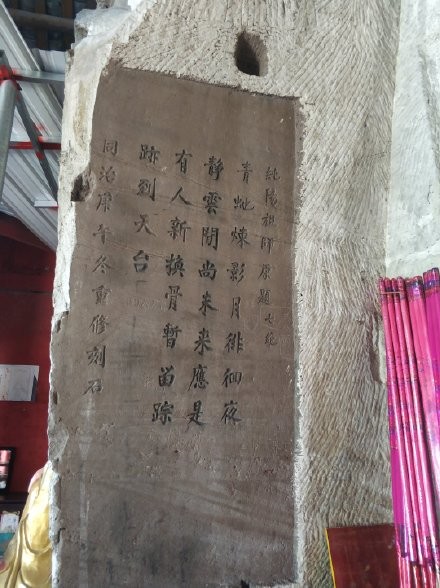 純陽祖師原題七絕
青虵煉影月徘徊夜
靜雲閒尚未來應是
有人新換骨暫留踪
跡到天台
同治庚午冬重修刻石